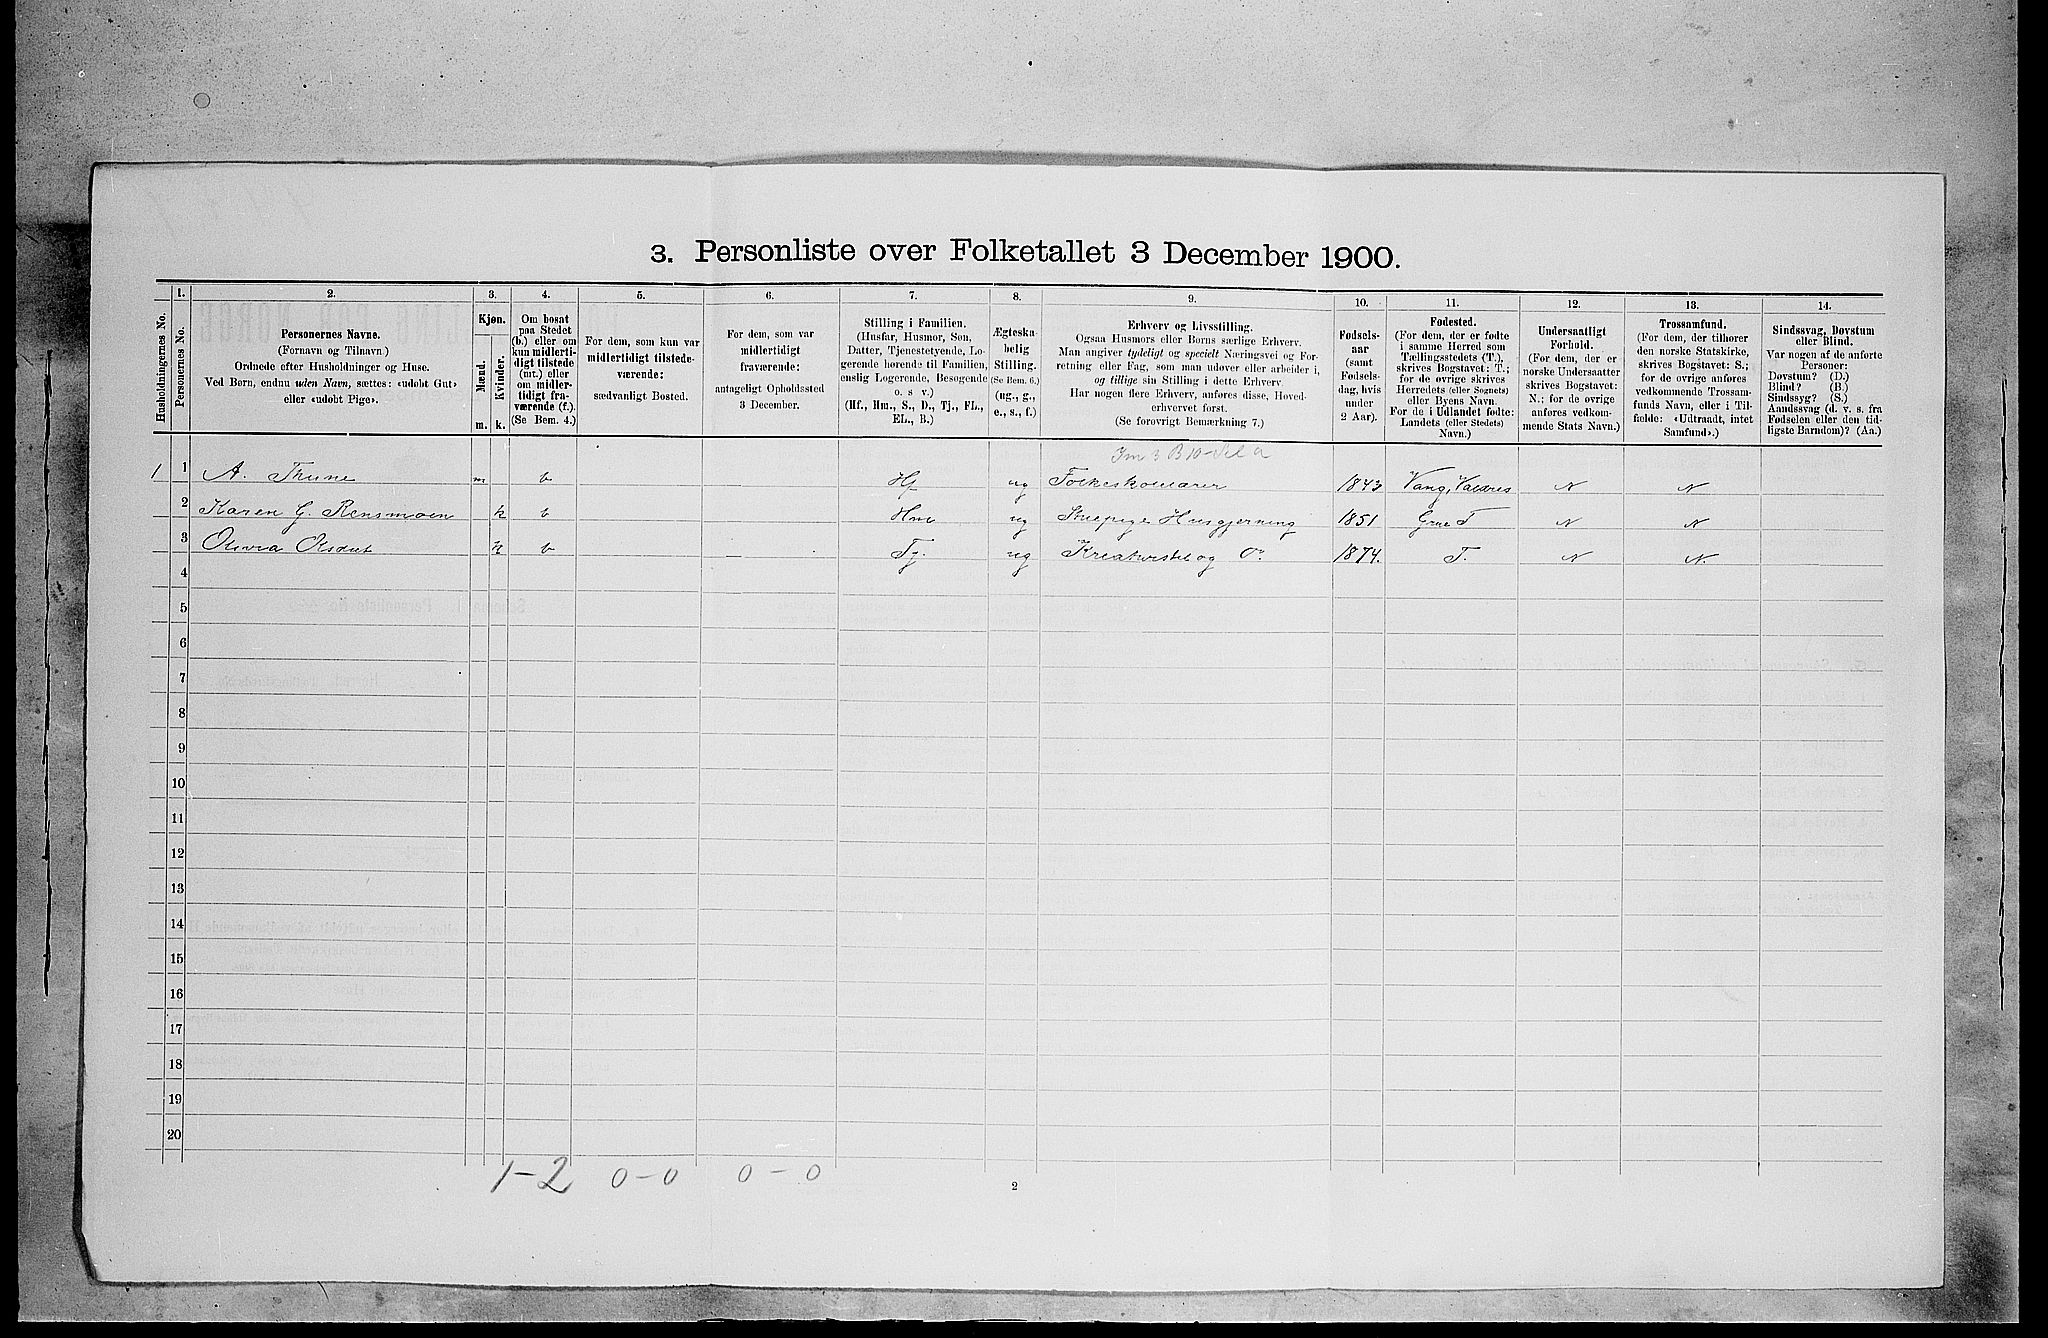 3. Personliste over Folketallet 3 December 1900.
Husholdningernes No.
1.
Personernes No.
2.
Personernes Navne.
(Fornavn og Tilnavn)
Ordnede efter Husholdninger og Huse.
Ved Børn, endnu uden Navn, sættes: «udøbt Gut»
eller «udøbt Pige».
3.
Kjøn.
Mænd.
Kvinder.
m. k.
4.
Om bosat
paa Stedet
(b.) eller om
kun midlerti-
digt tilstede
(mt.) eller
om midler-
tidigt fra-
værende (f.).
(Se Bem. 4.)
5.
For dem, som kun var
midlertidigt tilstede-
værende:
sædvanligt Bosted.
6.
For dem, som var
midlertidigt
fraværende:
antageligt Opholdssted
3 December.
7.
Stilling i Familien.
(Husfar, Husmor, Søn,
Datter, Tjenestetyende, Lo-
gerende hørende til Familien,
enslig Logerende, Besøgende
o. s v.)
(Hf., Hm., S., D., Tj., FL.,
EL., B.)
8.
Ægteska-
belig
Stilling.
(Se Bem. 6.)
(ug., g.,
e., s., f.)
9.
Erhverv og Livsstilling.
Ogsaa Husmors eller Børns særlige Erhverv.
Man angiver tydeligt og specielt Næringsvei og For-
retning eller Fag, som man udøver eller arbeider i,
og tillige sin Stilling i dette Erhverv.
Har nogen flere Erhverv, anføres disse, Hoved-
erhvervet først.
(Se forøvrigt Bemærkning 7.)
10.
Fødsels-
aar
(samt
Fødsels-
dag, hvis
under
2 Aar).
11.
Fødested.
(For dem, der er fødte
i samme Herred som
Tællingsstedets (T.),
skrives Bogstavet: T.;
for de øvrige skrives
Herredets (eller Sognets)
eller Byens Navn.
For de i Udlandet fødte:
Landets (eller Stedets)
Navn.)
12.
Undersaatligt
Forhold.
(For dem, der er
norske Undersaatter
skrives Bogstavet:
N.; for de øvrige
anføres vedkom-
mende Stats Navn.)
13.
Trossamfund.
(For dem, der tilhører
den norske Statskirke,
skrives Bogstavet: S.;
for de øvrige anføres
vedkommende Trossam-
funds Navn, eller i Til-
fælde: «Udtraadt, intet
Samfund».)
14.
Sindssvag, Døvstum
eller Blind.
Var nogen af de anførte
Personer:
Døvstum? (D.)
Blind? (B.)
Sindssyg? (S.)
Aandssvag (d. v. s. fra
Fødselen eller den tid-
ligste Barndom)? (Aa.)
1 1 A. Thune m b Hf ug Folkeskolelærer 1843 Vang, Valdres N N
2 Karen G. Rensmoen k b Hm ug Husgjerning 1851 Grue T N N
3 Olivia Oksdut k b Tj. ug Kreaturstel og Do. 1874. T. N N.
4
5
6
7
8
9
10
11
12
13
14
15
16
17
18
19
20
1-2 0-0 0-0
2